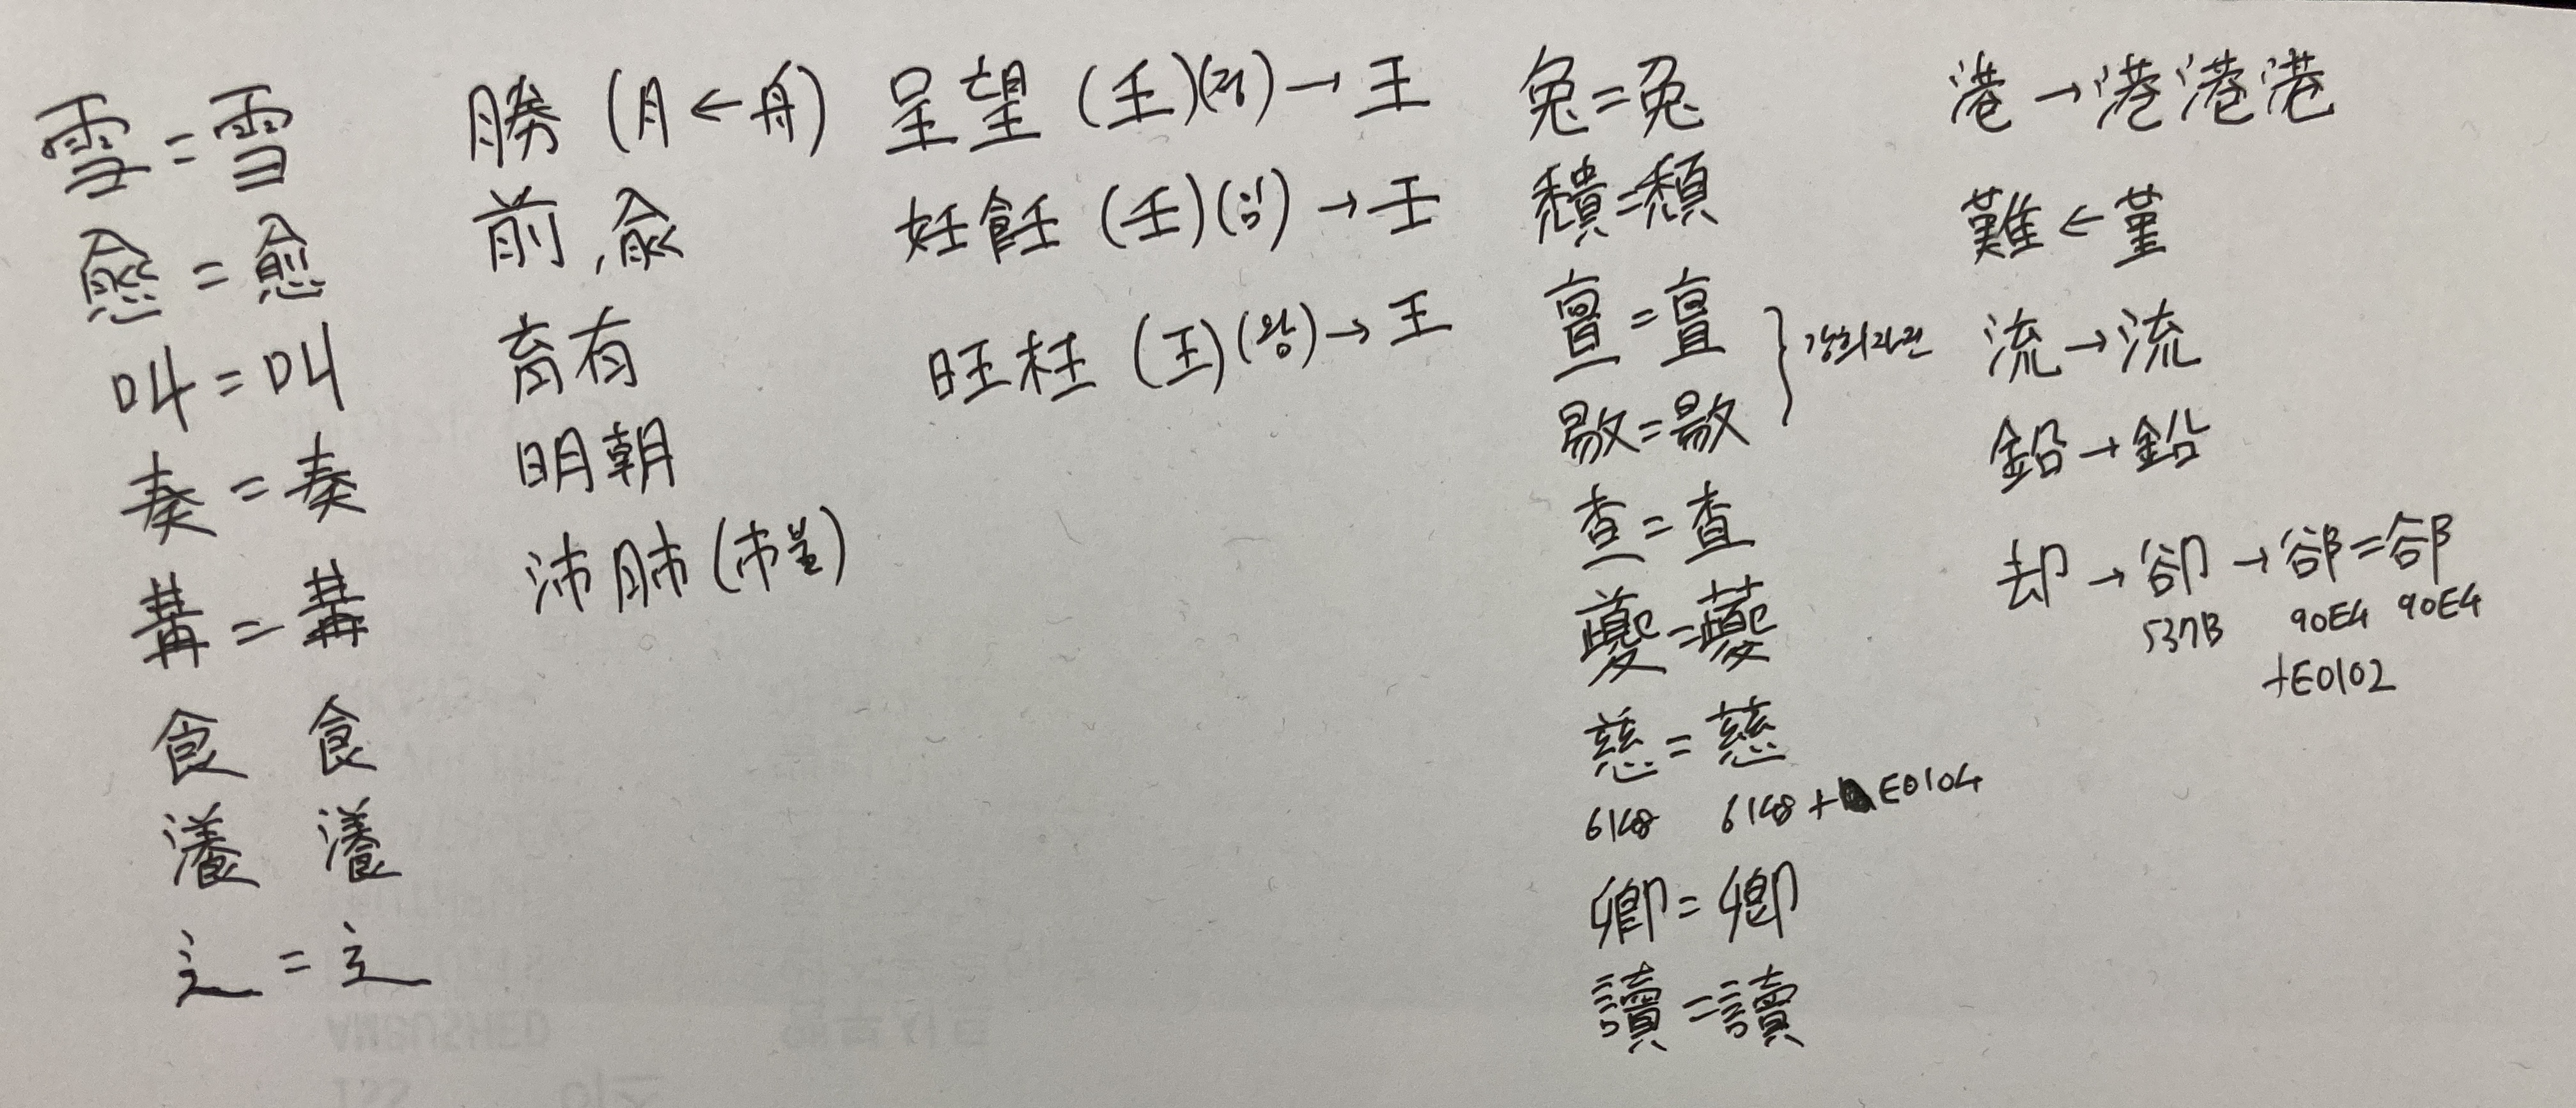 雪=雪
愈=愈
叫=叫
奏=奏
冓=冓
食 食
瀁 瀁
辶=辶
勝 (月←舟)
前,兪
育有
明朝
沛肺(市불)
呈望 (𡈼)(정)→王
妊飪 (壬)(임)→壬
旺枉 (王)(왕)→王
兔=兎
穨=頹
亶=亶
敭=敭
}강희자전
查=査
夔=蘷
慈=慈
6148 6148+E0104
卿=卿
讀=讀
港→港港港
難←堇
流→流
鉛→鉛
却→卻→郤=郤
537B 90E4 90E4
+E0102